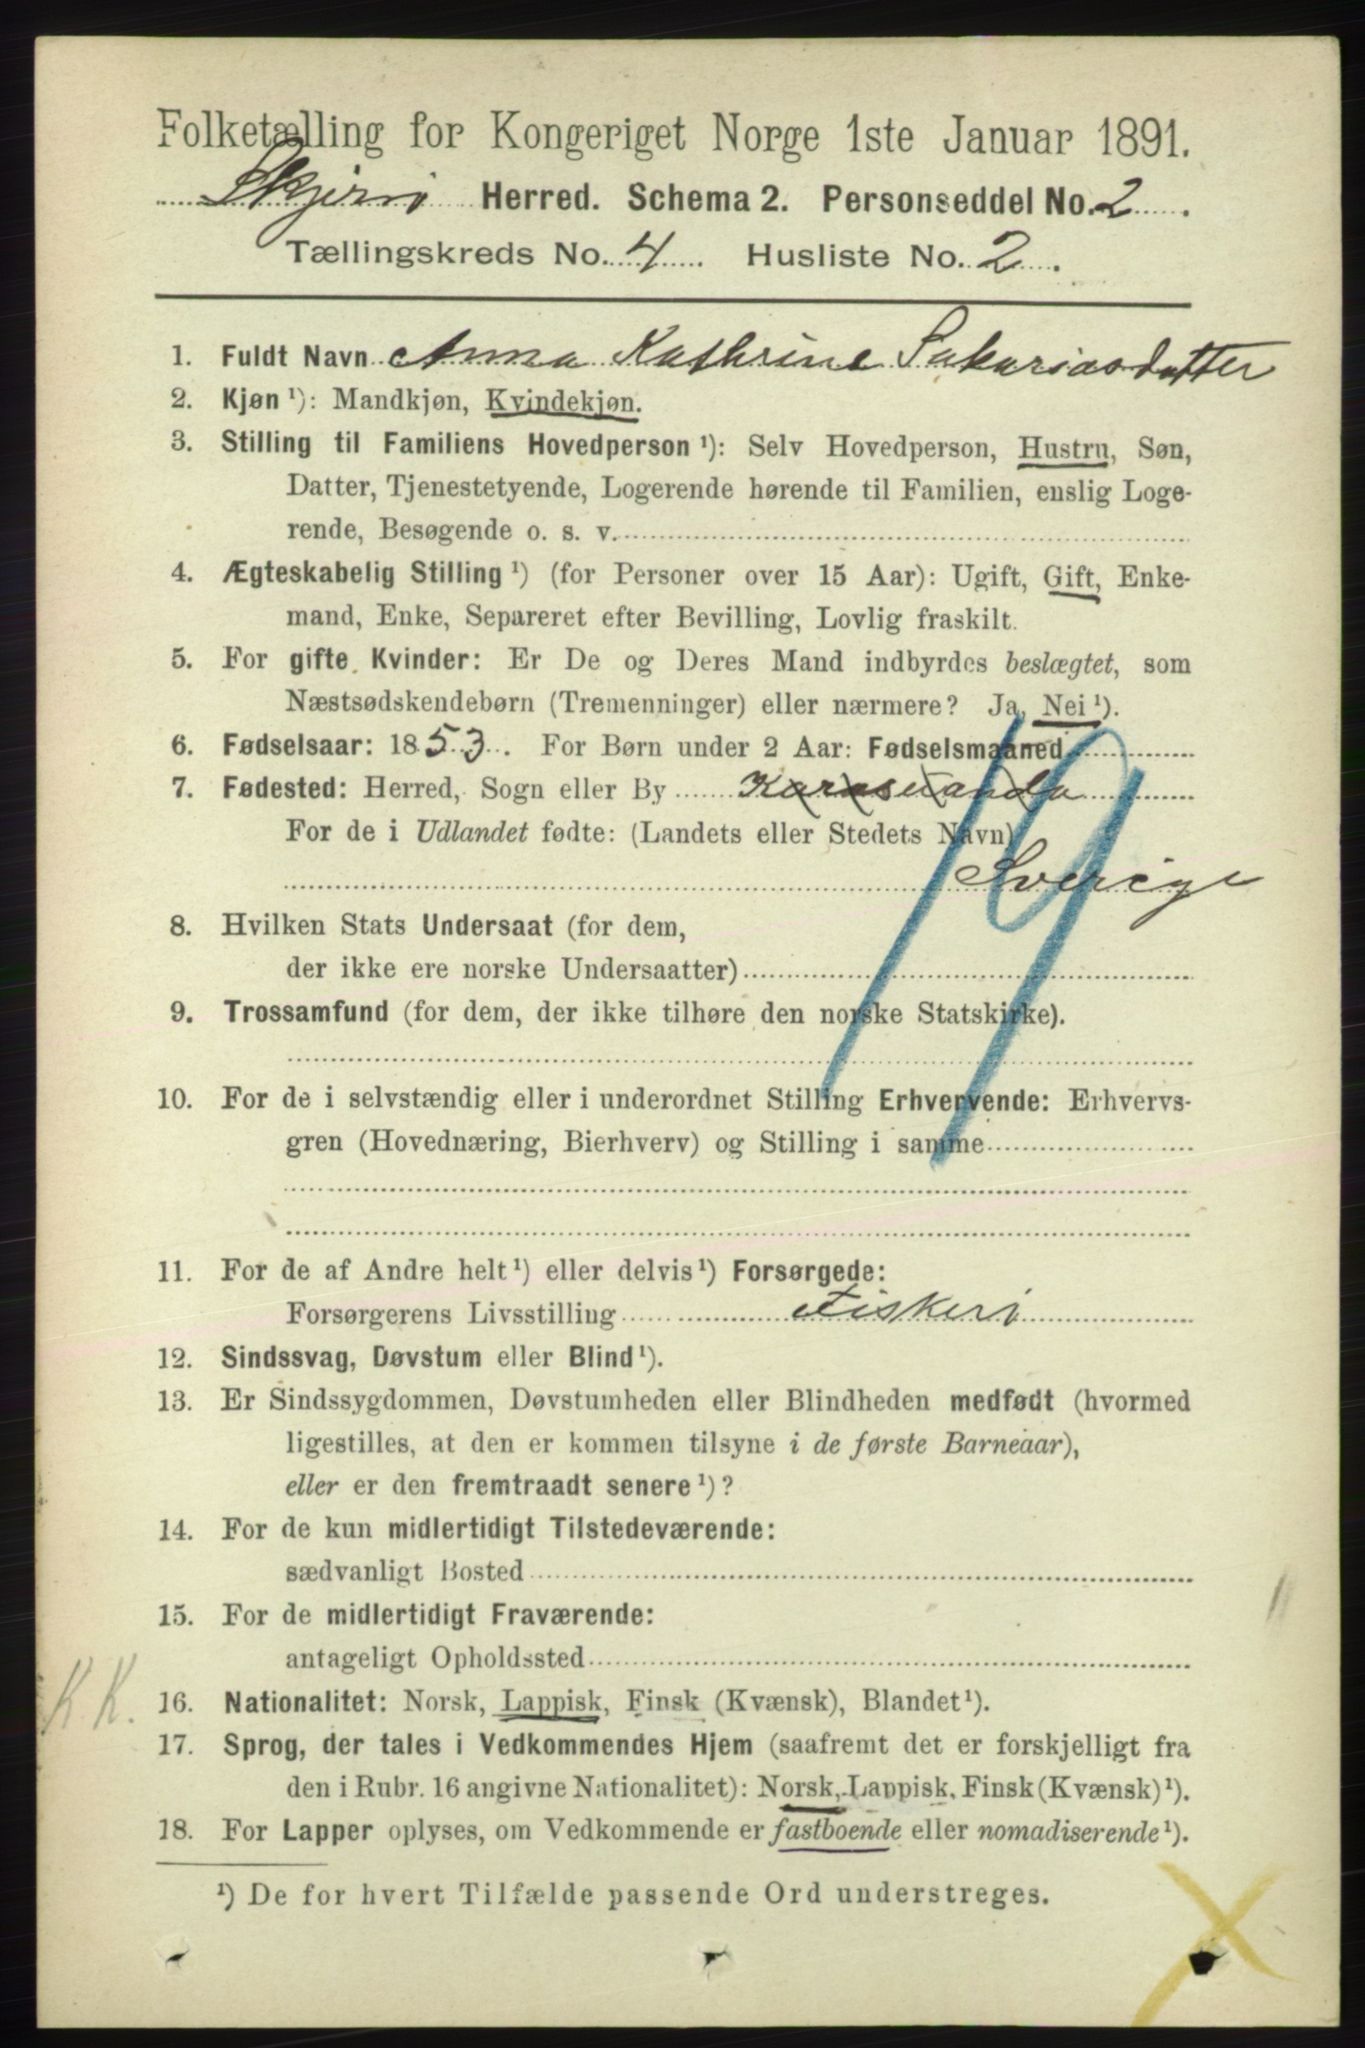 Folketælling for Kongeriget Norge 1ste Januar 1891.
Skjervø Herred. Schema 2. Personseddel No. 2
Tællingskreds No. 4 Husliste No. 2.
1. Fuldt Navn Anna Kathrine Sakariasdatter
2. Kjøn ¹): Mandkjøn, Kvindekjøn.
3. Stilling til Familiens Hovedperson ¹): Selv Hovedperson, Hustru, Søn,
Datter, Tjenestetyende, Logerende hørende til Familien, enslig Loge-
rende, Besøgende o. s. v.
4. Ægteskabelig Stilling ¹) (for Personer over 15 Aar): Ugift, Gift, Enke-
mand, Enke, Separeret efter Bevilling, Lovlig fraskilt.
5. For gifte Kvinder: Er De og Deres Mand indbyrdes beslægtet, som
Næstsødskendebørn (Tremenninger) eller nærmere? Ja, Nei ¹).
6. Fødselsaar: 1853. For Børn under 2 Aar: Fødselsmaaned
7. Fødested: Herred, Sogn eller By Karasuanda
For de i Udlandet fødte: (Landets eller Stedets Navn)
Sverige
19
8. Hvilken Stats Undersaat (for dem,
der ikke ere norske Undersaatter)
9. Trossamfund (for dem, der ikke tilhøre den norske Statskirke).
10. For de i selvstændig eller i underordnet Stilling Erhvervende: Erhvervs-
gren (Hovednæring, Bierhverv) og Stilling i samme
11. For de af Andre helt ¹) eller delvis ¹) Forsørgede:
Forsørgerens Livsstilling Fiskeri
12. Sindssvag, Døvstum eller Blind ¹).
13. Er Sindssygdommen, Døvstumheden eller Blindheden medfødt (hvormed
ligestilles, at den er kommen tilsyne i de første Barneaar),
eller er den fremtraadt senere ¹)?
14. For de kun midlertidigt Tilstedeværende:
sædvanligt Bosted
15. For de midlertidigt Fraværende:
antageligt Opholdssted
K.K. 16. Nationalitet: Norsk, Lappisk, Finsk (Kvænsk), Blandet ¹).
17. Sprog, der tales i Vedkommendes Hjem (saafremt det er forskjelligt fra
den i Rubr. 16 angivne Nationalitet): Norsk, Lappisk, Finsk (Kvænsk) ¹).
18. For Lapper oplyses, om Vedkommende er fastboende eller nomadiserende ¹).
¹) De for hvert Tilfælde passende Ord understreges.